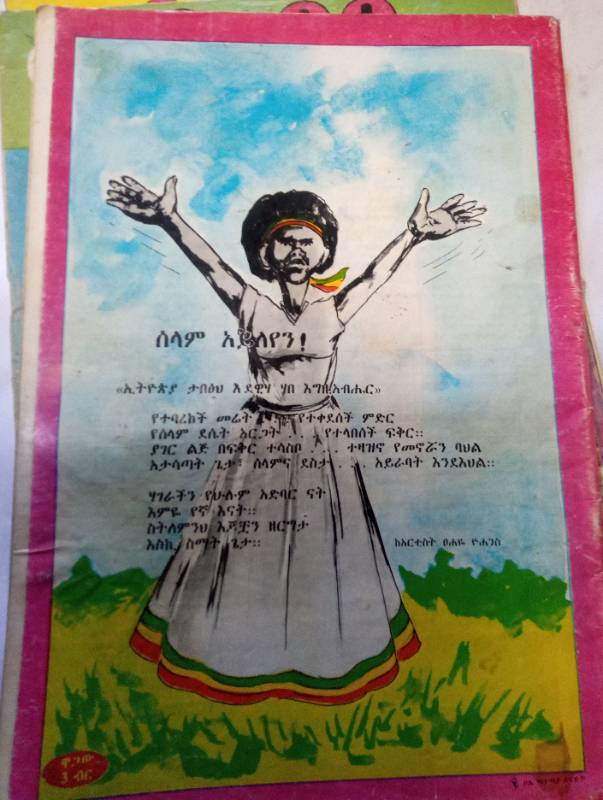 ሰላም አይለየን!
«ኢትዮጵያ ታበፅህ እደዊሃ ሃበ እግዚአብሔር»
የተባረከች መሬት የተቀደሰች ምድር
የሰላም ደሴት እርጋት . . . የተላበሰች ፍቅር።
ያገር ልጅ በፍቅር ተሳስቦ . . . ተዛዝኖ የመኖሯን ባህል
አታሳጣት ጌታ፣ ሰላምና ደስታ . . . አይራባት እንደእህል።
ሃገራችን የሁሉም አድባር ናት
እምዬ የኛ እናት።
ስትለምንህ እጆቿን ዘርግታ
እስኪ ስማት ጌታ።
ከአርቲስት ፀሐዬ ዮሐንስ
ዋጋው
3 ብር